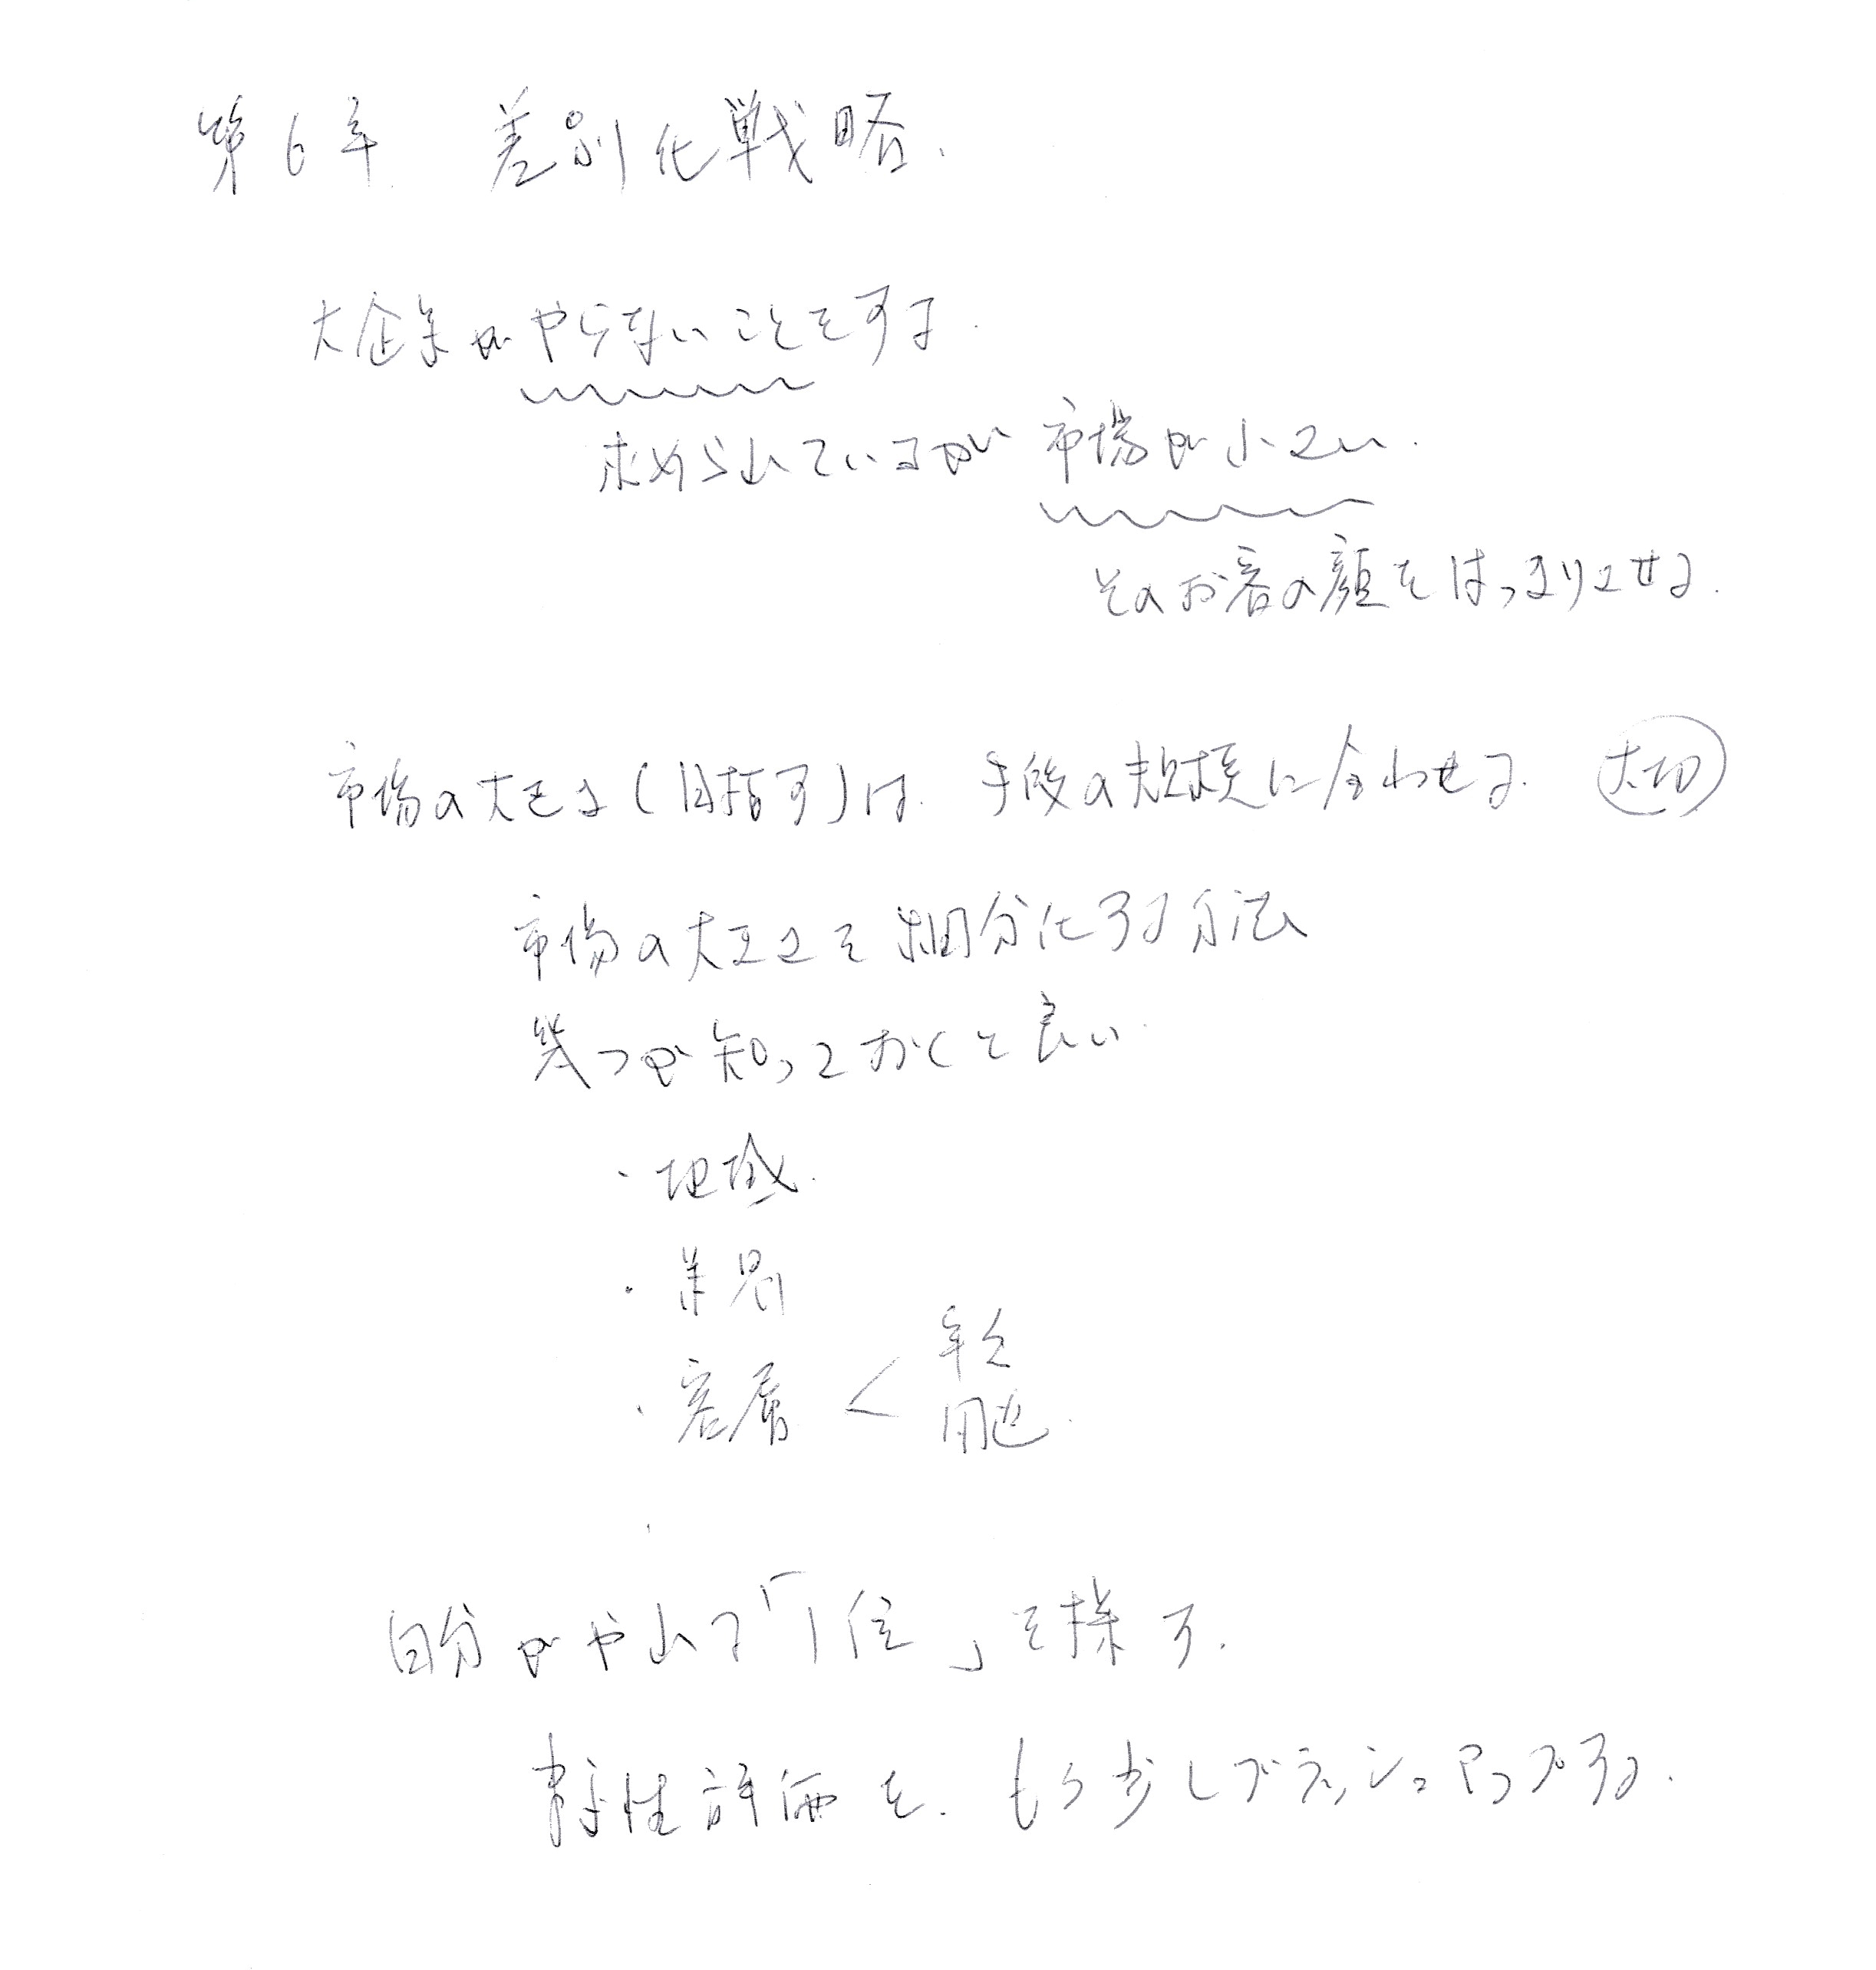 第6章 差別化戦略.
大企業がやらないことをする.
求められているが市場が小さい.
そのお客の顔をはっきりさせる.
市場の大きさ(目指す)は 手段の規模に合わせる. 大切
市場の大きさを細分化する方法
幾つか知っておくと良い.
・地域.
・業界
・客層 < 年令
用途.
自分がやれる「1位」を探す.
特性評価を.もう少しブラッシュアップする.